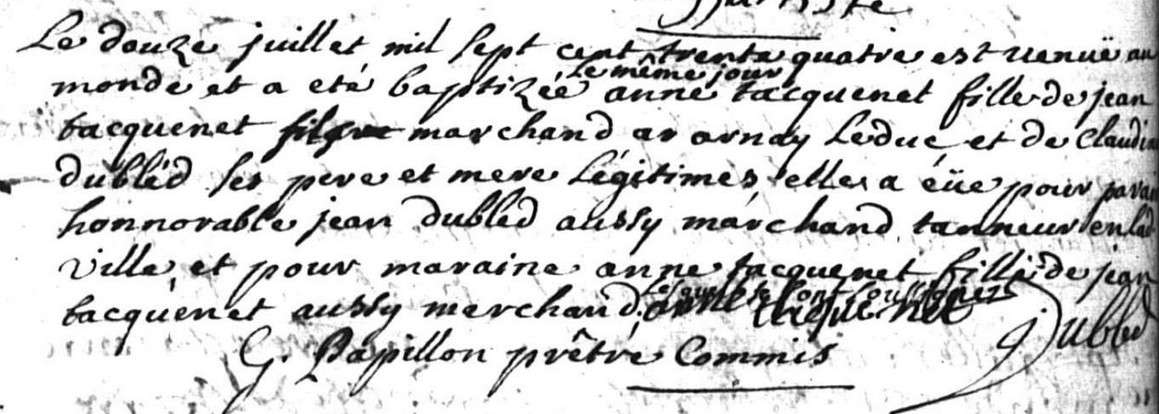 Le douze juillet mil sept cent trente quatre est venuë au
monde et a eté baptizéé le même jour anne tacquenet fille de jean
tacquenet marchand ar arnay Leduc et de Claudin
dubléd ses pere et mere Légitimes elle a éüe pour parai
honnorable jean dubled aussy marchand tanneur en lad
ville et pour maraine anne tacquenet fille de jean
tacquenet aussy marchand Lesquels se sont soussignez
anne tacquenet
J Dubled
G. Papillon prêtre Commis